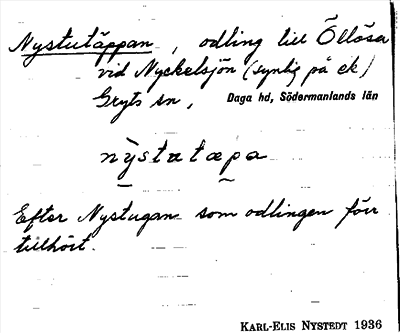 Nystutäppan, odling till Öllösa
vid Nyckelsjön (synlig på ek)
Gryts sn, Daga hd, Södermanlands län
nỳstɯtæpa
Efter Nystugan som odlingen förr
tillhört.
KARL-ELIS NYSTEDT 1936